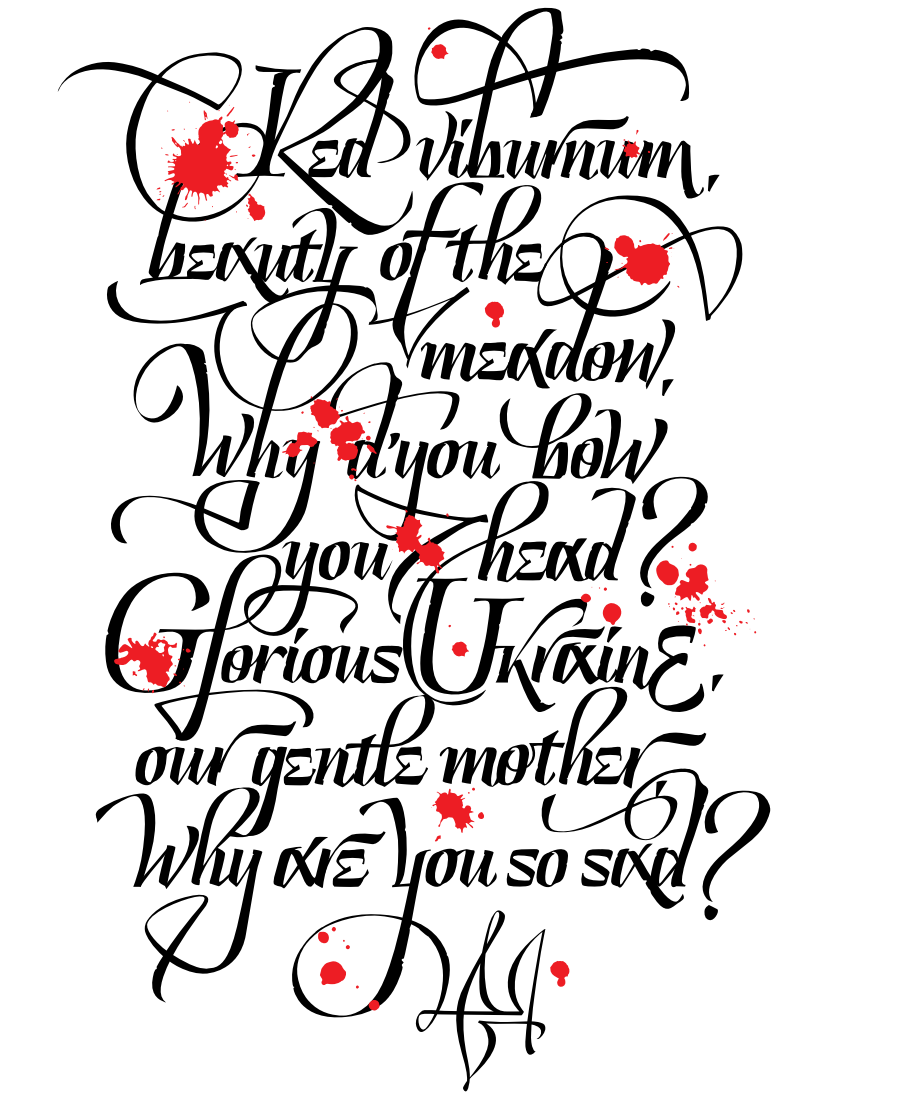 Red viburnum,
beauty of the
meadow,
Why d'you bow
you head?
Glorious Ukraine,
our gentle mother,
Why are you so sad?